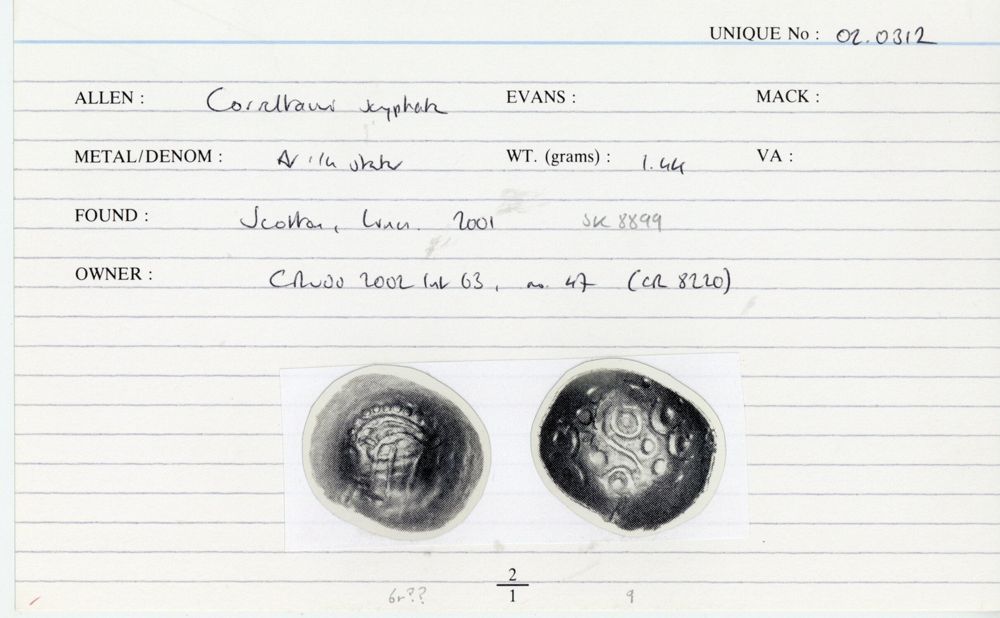 UNIQUE No : 02.0312
ALLEN : Corieltauvi scyphate EVANS : MACK :
METAL/DENOM : stater WT. (grams) : 1.44 VA :
FOUND : Scotton, Lincs. 2001 SK 8899
OWNER : 2002 63, no. 47 (CR 8220)
2
1
6r?? 9